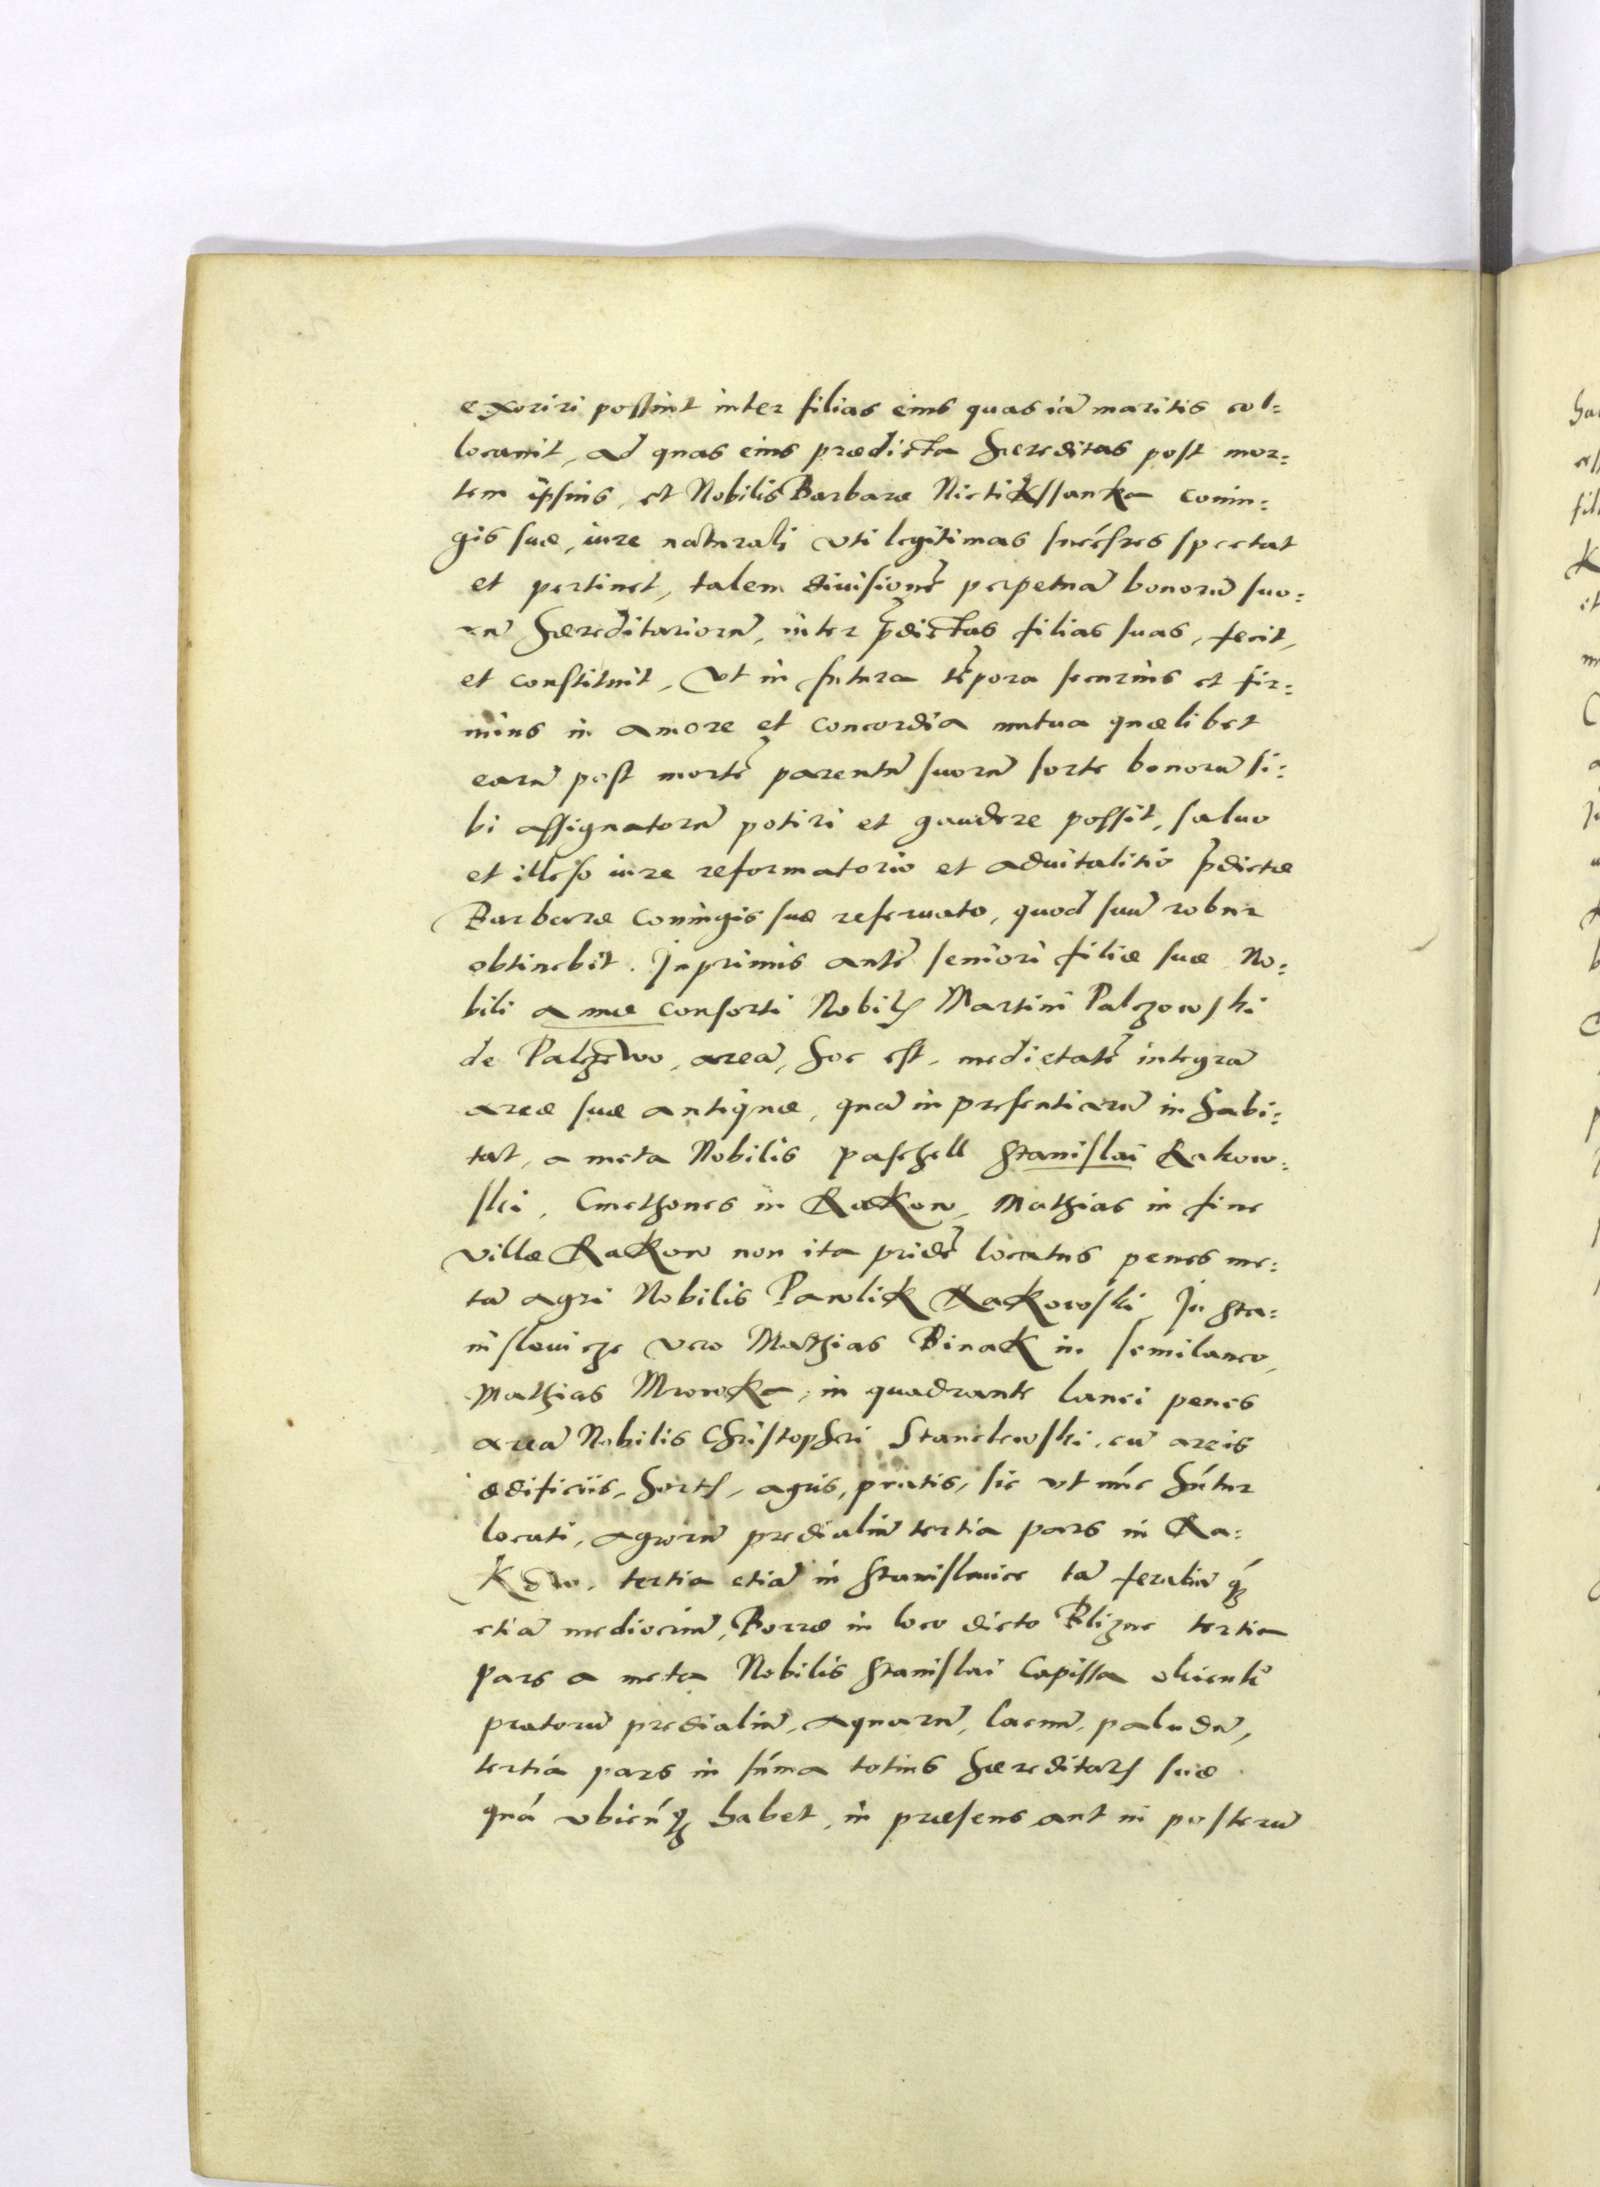 exoriri possint inter filias eius quas iã maritis col=
locauit, ad quas eius prædicta hereditas post mor=
tem ipsius, et Nobilis Barbaræ Nictikssanka coniu=
gis suæ, iure naturali vti legitimas succēsres spectat
et pertinet, talem diuisionẽ perpetuã bonorũ suo=
rũ hæreditariorũ, inter p̃dictas filias suas, fecit,
et constituit, Vt in futura tẽpora securius et fir=
mius in amore et concordia mutua quælibet
earũ post mortẽ parentũ suorũ sorte bonorũ si=
bi assignatorũ potiri et gaudere possit, saluo
et illeso iure reformatorio et aduitalitio p̃dictæ
Barbaræ coniugis suæ reseruato, quod suũ robur
obtinebit. Inprimis autẽ seniori filiæ suæ No=
bili annæ consorti Nobilis Martini Palczowski
de Palczewo, areã, hoc est, medietatẽ integrã
areæ suæ antiquæ, quã in presentiarũ inhabi=
tat, a meta Nobilis paschell Stanislai Rakow=
ski, Cmethones in Rakow, Mathias in fine
villæ Rakow non ita pridẽ locatus penes me=
tã agri Nobilis Pawlik Rakowski, In Sta=
nislauicze vero Mathias Binak in semilaneo,
Mathias Mrowka, in quadrante lanei penes
areã Nobilis Christopheri Stanclewski, cũ areis
ædificiis, hortis, agris, pratis, sic vt nũc hńtur
locati, agrorũ predialiũ tertia pars in Ra=
kow, tertia etiã in Stanislauice tã feraliũ q̃
etiã mediocriũ, Borræ in loco dicto Blizne tertia
pars a meta Nobilis Stanislai Capissa
pratorũ predialiũ, aquarũ, lacuũ, paludũ,
tertia pars in sũma totius hæreditatis suæ
quã vbicũq habet, in præsens aut in posterũ